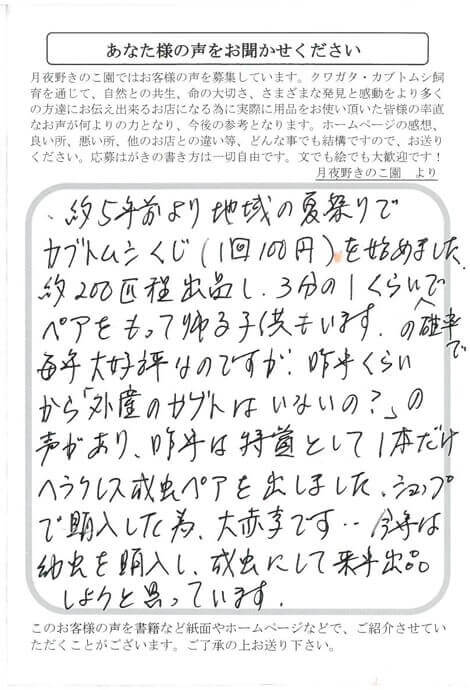 あなた様の声をお聞かせください
月夜野きのこ園ではお客様の声を募集しています。クワガタ・カブトムシ飼
育を通じて、自然との共生、命の大切さ、さまざまな発見と感動をより多く
の方達にお伝え出来るお店になる為に実際に用品をお使い頂いた皆様の率直
なお声が何よりの力となり、今後の参考となります。ホームページの感想、
良い所、悪い所、他のお店との違い等、どんな事でも結構ですので、お送り
ください。応募はがきの書き方は一切自由です。文でも絵でも大歓迎です！
月夜野きのこ園 より
、約5年前より地域の夏祭りで
カブトムシくじ(1回100円)を始めました。
約200匹程出品し、3分の1くらいの確率で
ペアをもって帰る子供もいます。
毎年大好評なのですが、昨年くらい
から「外産のカブトはいないの?」の
声があり、昨年は特賞として1本だけ
ヘラクレス成虫ペアを出しました。ショップ
で購入した為、大赤字です‥今年は
幼虫を購入し、成虫にして来年出品
しようと思っています。
このお客様の声を書籍など紙面やホームページなどで、ご紹介させてい
ただくことがございます。ご了承の上お送り下さい。